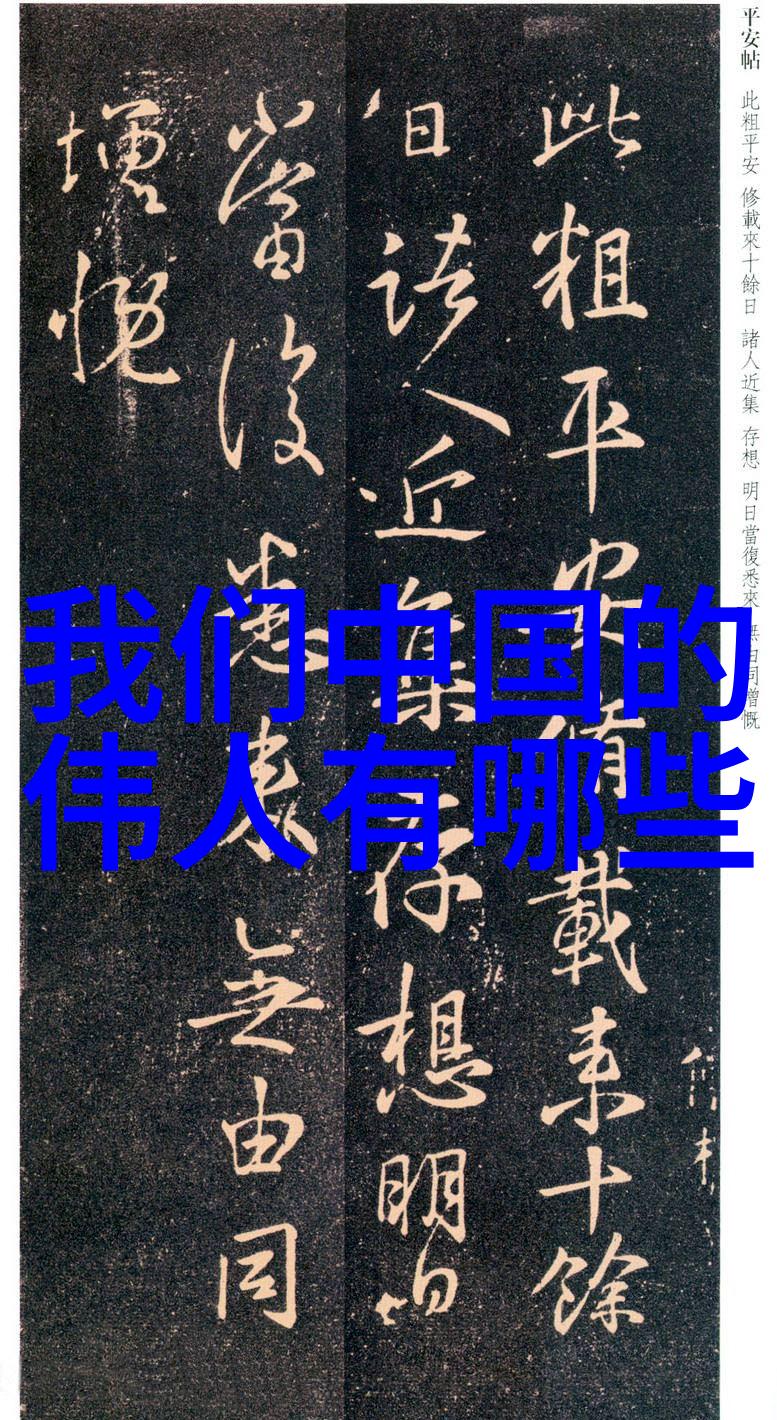 平安帖 此粗平安 修載來十餘日 諸人近集 存想 明日當復悉來 無由同增慨
此粗平安脩載來十餘
日諸人近集存想明日
當復悉來無由同
增慨
我们中国的
伟人有哪些